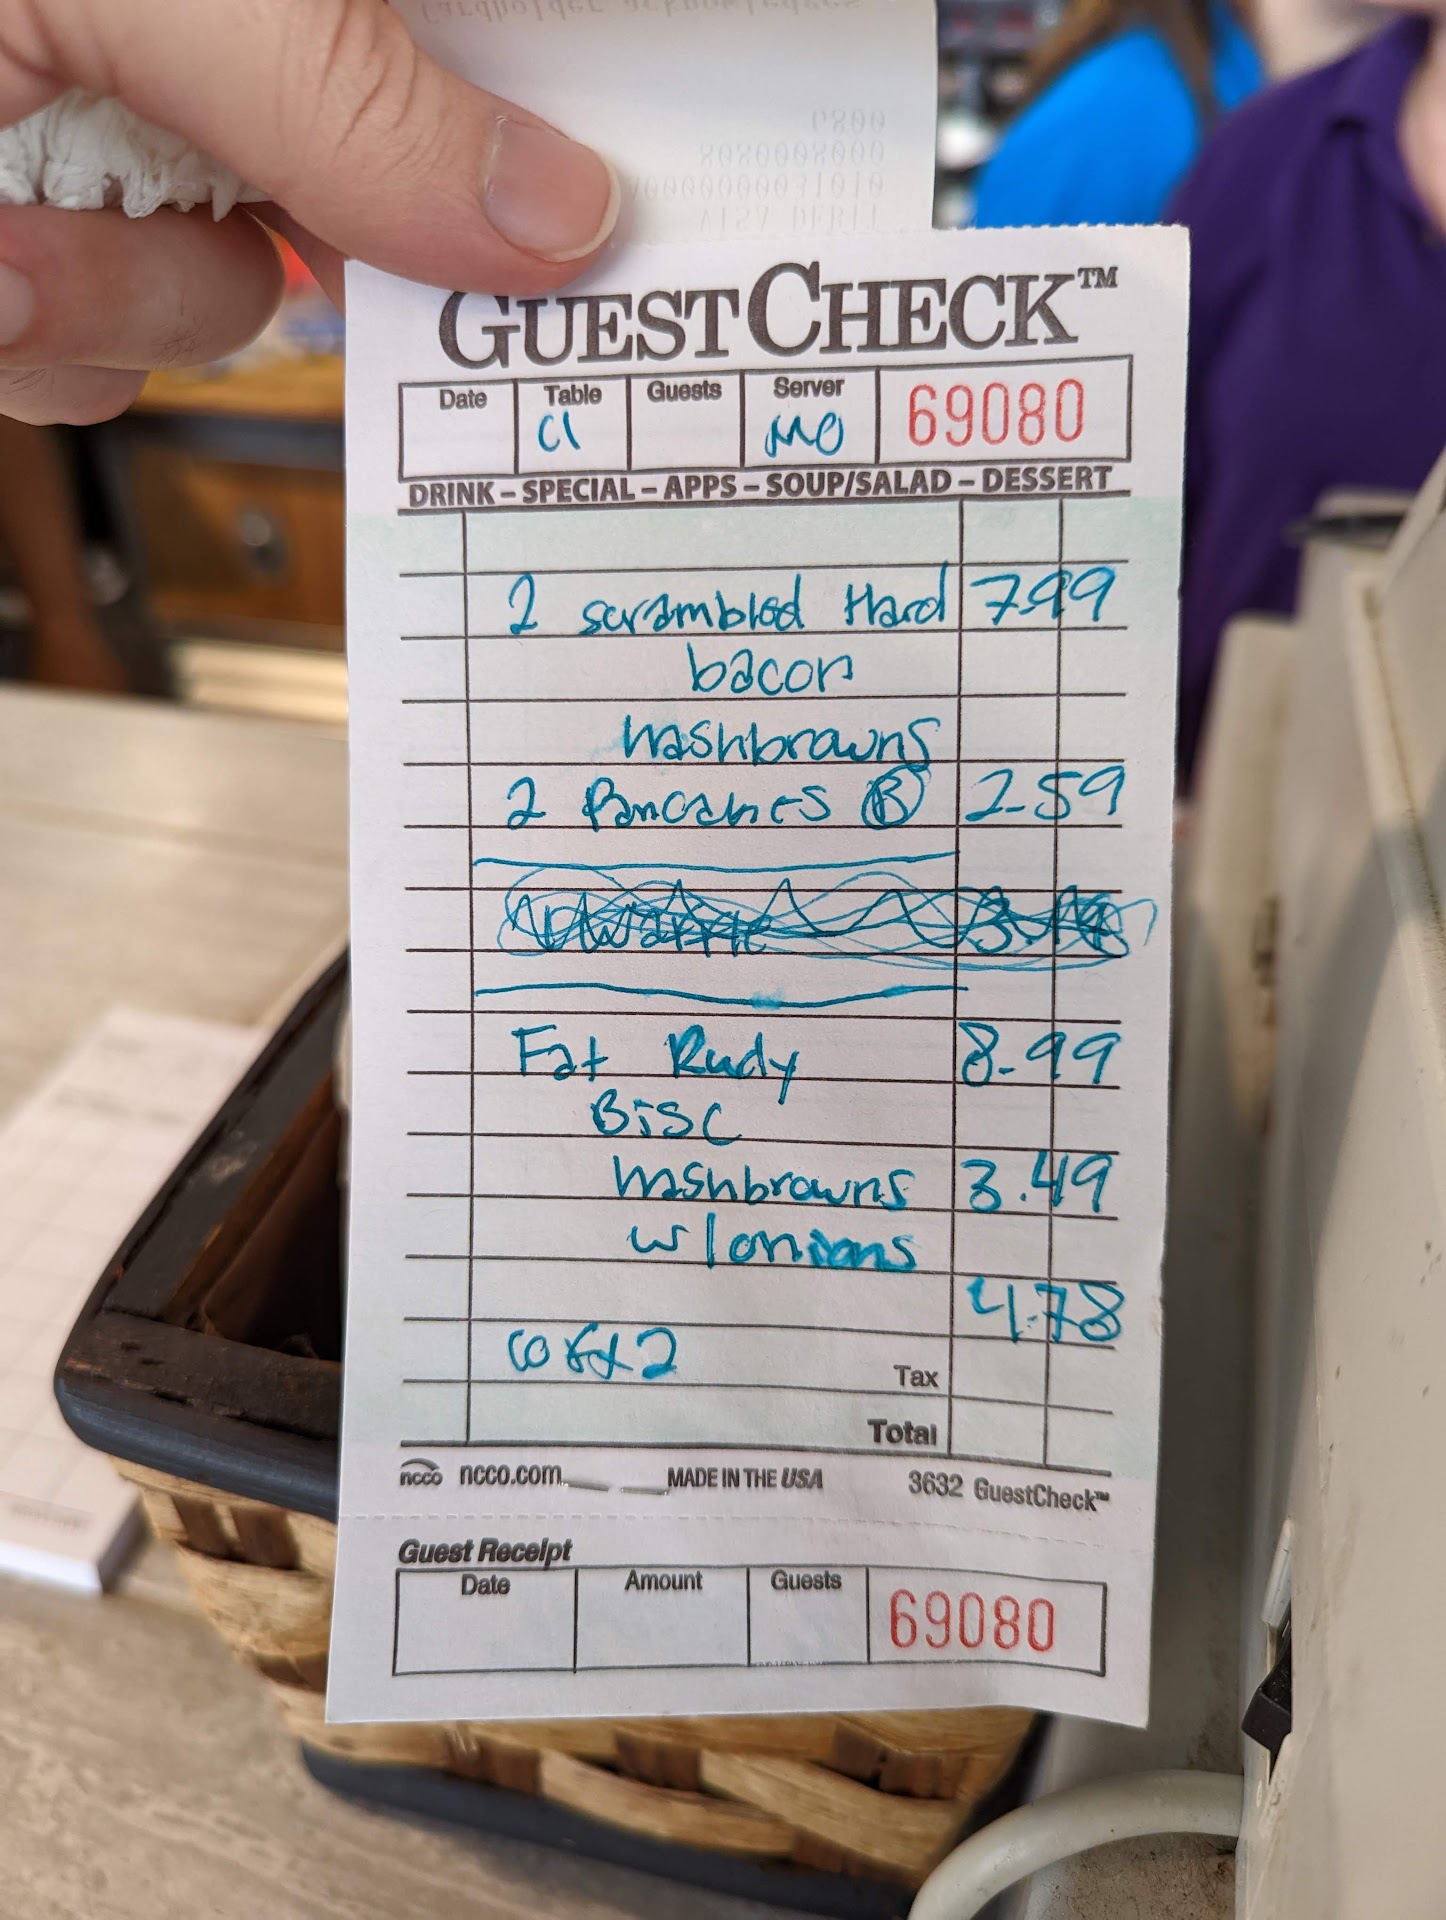 GUESTCHECK™
Date Table Guests Server 69080
C1 MO
DRINK – SPECIAL – APPS – SOUP/SALAD – DESSERT
2 scrambled Hard 7.99
bacon
hashbrowns
2 Pancakes B 2.59
Fat Rudy 8.99
Bisc
hashbrowns 3.49
w/onions
4.78
coff x2
Tax
Total
ncco ncco.com MADE IN THE USA 3632 GuestCheck™
Guest Receipt
Date Amount Guests 69080